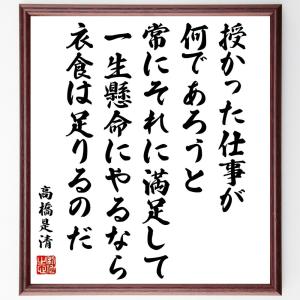 授かった仕事が
何であろうと
常にそれに満足して
一生懸命にやるなら
衣食は足りるのだ
高橋是清